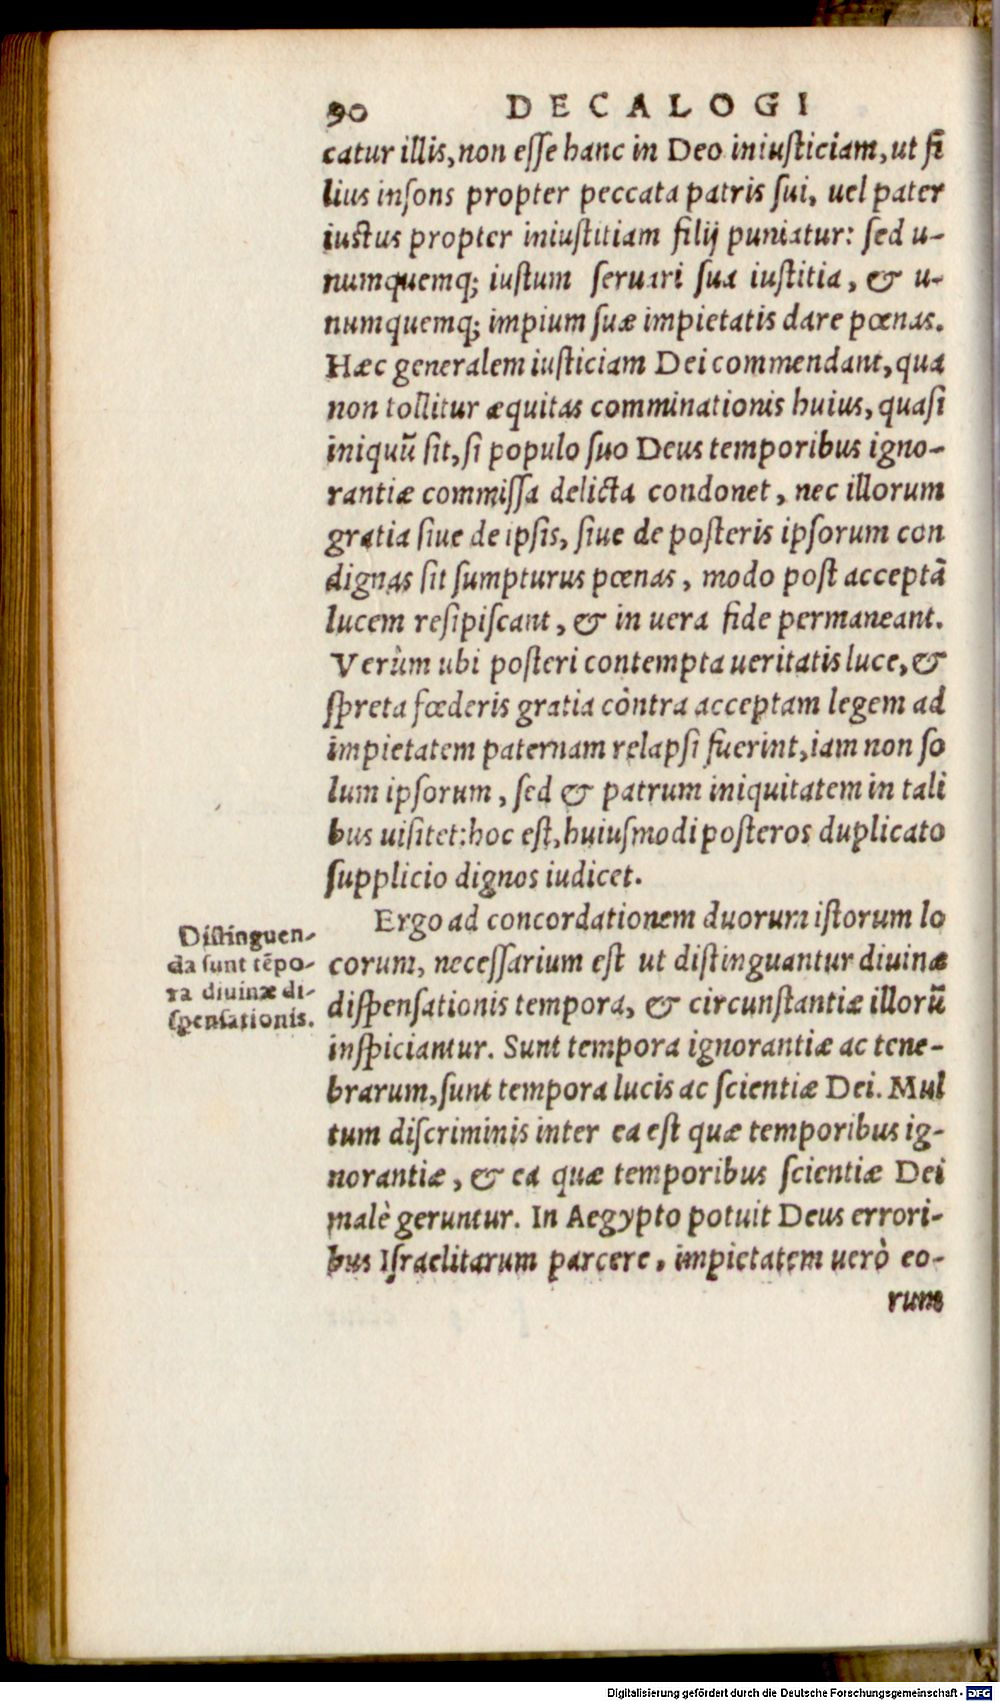 90 DECALOGI
catur illis, non esse hanc in Deo iniusticiam, ut fi
lius insons propter peccata patris sui, uel pater
iustus propter iniustitiam filij puniatur: sed u-
numquemq; iustum seruari sua iustitia, & u-
numquemq; impium suæ impietatis dare pœnas.
Hæc generalem iusticiam Dei commendant, qua
non tollitur æquitas comminationis huius, quasi
iniquũ sit, si populo suo Deus temporibus igno-
rantiæ commissa delicta condonet, nec illorum
gratia siue de ipsis, siue de posteris ipsorum con
dignas sit sumpturus pœnas, modo post acceptã
lucem resipiscant, & in uera fide permaneant.
Verùm ubi posteri contempta ueritatis luce, &
spreta fœderis gratia còntra acceptam legem ad
impietatem paternam relapsi fuerint, iam non so
lum ipsorum, sed & patrum iniquitatem in tali
bus uisitet: hoc est, huiusmodi posteros duplicato
supplicio dignos iudicet.
Ergo ad concordationem duorum istorum lo
corum, necessarium est ut distinguantur diuinæ
dispensationis tempora, & circunstantiæ illorũ
inspiciantur. Sunt tempora ignorantiæ ac tene-
brarum, sunt tempora lucis ac scientiæ Dei. Mul
tum discriminis inter ea est quæ temporibus ig-
norantiæ, & ea quæ temporibus scientiæ Dei
malè geruntur. In Aegypto potuit Deus errori-
bus Israelitarum parcere, impietatem uerò eo-
rum
Distinguen-
da sunt tẽpo-
ra diuinæ di-
spensationis.
Digitalisierung gefördert durch die Deutsche Forschungsgemeinschaft - DFG